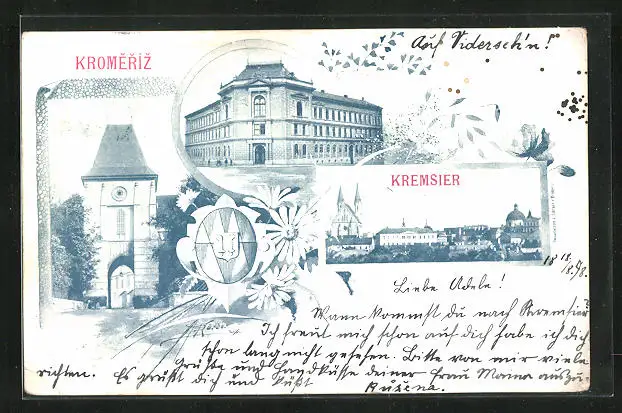 Auf Vidersch'n!
KROMĚŘÍŽ
KREMSIER
18 18/8 98.
Liebe Adele!
Wann kommst du nach Kremsier?
Ich freut mich schon auf dich habe ich dich
schon lang nicht gesehen. Bitte von mir viele
Grüsse und Handküsse deiner Frau Mama auszu-
richten. Es grüßt dich und küßt
Růžena.